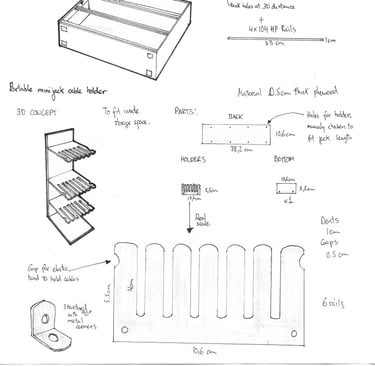 holes at 3U distance
+
4x 104 HP Rails
53 cm
1cm
Portable minijack cable holder
Material 0.5cm thick plywood
3D CONCEPT
To fit inside
storage space.
PARTS:
BACK
10,6cm
38,2 cm
Holes for holders
manually chosen to
fit jack length
HOLDERS
BOTTOM
5,5cm
10,6cm
x1
Real
scale
Dents
1cm
Gaps
0.5cm
Gap for elastic
band to hold cables
5.5cm
4cm
6 rails
Structured
with
metal
corners
10,6 cm